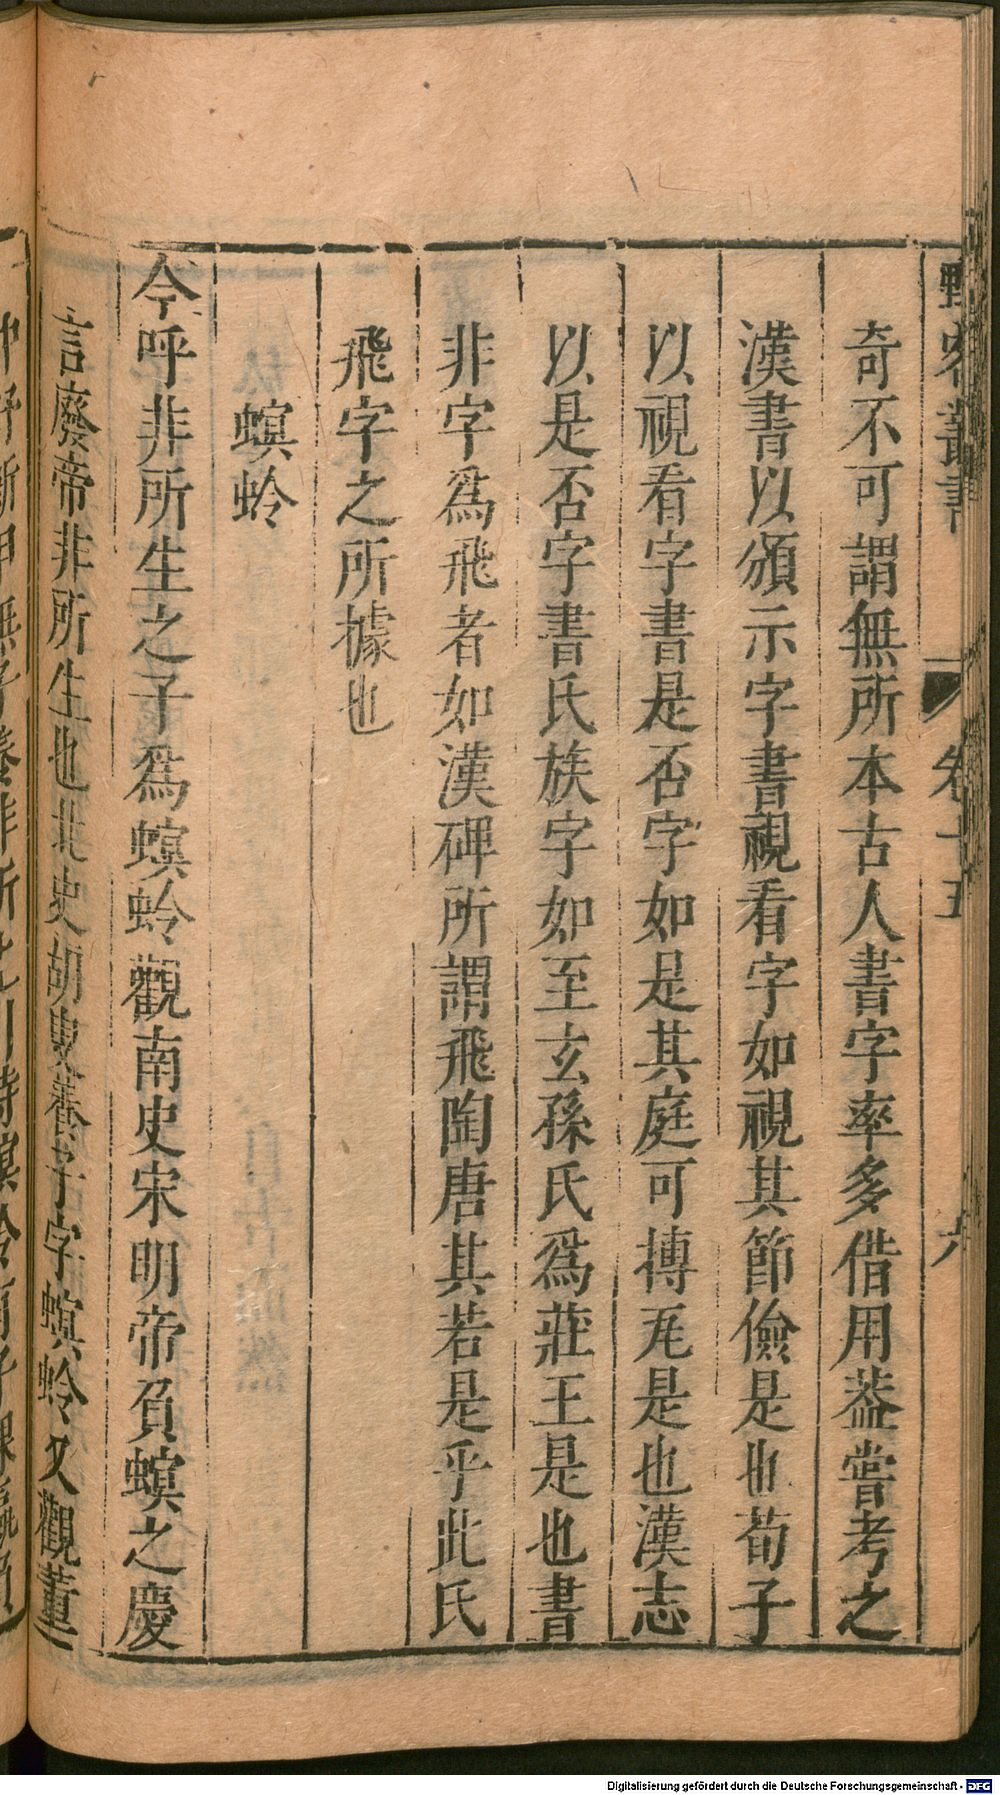 野客叢書 卷十五 六
奇不可謂無所本古人書字率多借用葢嘗考之
漢書以頒示字書視看字如視其節儉是也荀子
以視看字書是否字如是其庭可摶而是也漢志
以是否字書氏族字如至玄孫氏爲莊王是也書
非字爲飛者如漢碑所謂飛陶唐其若是乎此氏
飛字之所據也
螟蛉
今呼非所生之子爲螟蛉觀南史宋明帝負螟之慶
言廢帝非所生也北史胡叟養子字螟蛉又觀董
Digitalisierung gefördert durch die Deutsche Forschungsgemeinschaft - DFG